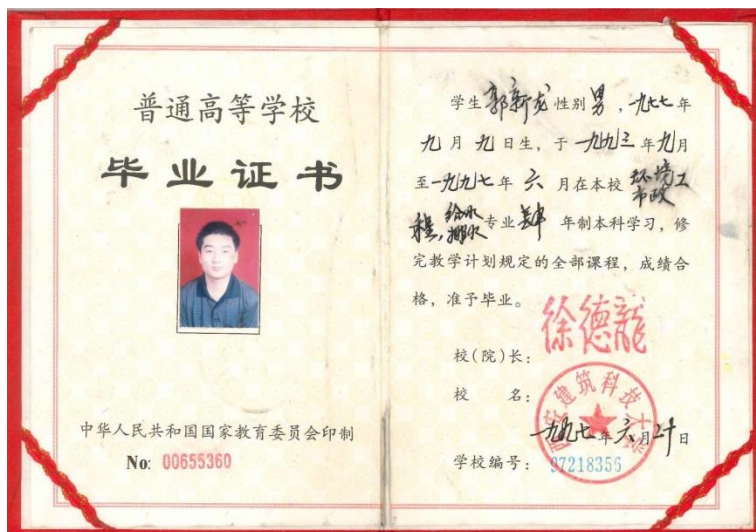 普通高等学校
毕业证书
中华人民共和国国家教育委员会印制
No: 00655360
学生郭新龙性别男，一九七七年
九月九日生，于一九九三年九月
至一九九七年六月在本校环境工
市政
程，给水排水专业肆年制本科学习，修
完教学计划规定的全部课程，成绩合
格，准予毕业。
校(院)长：徐德龍
校名：
西安建筑科技大学
一九九七年六月 日
学校编号：97218356